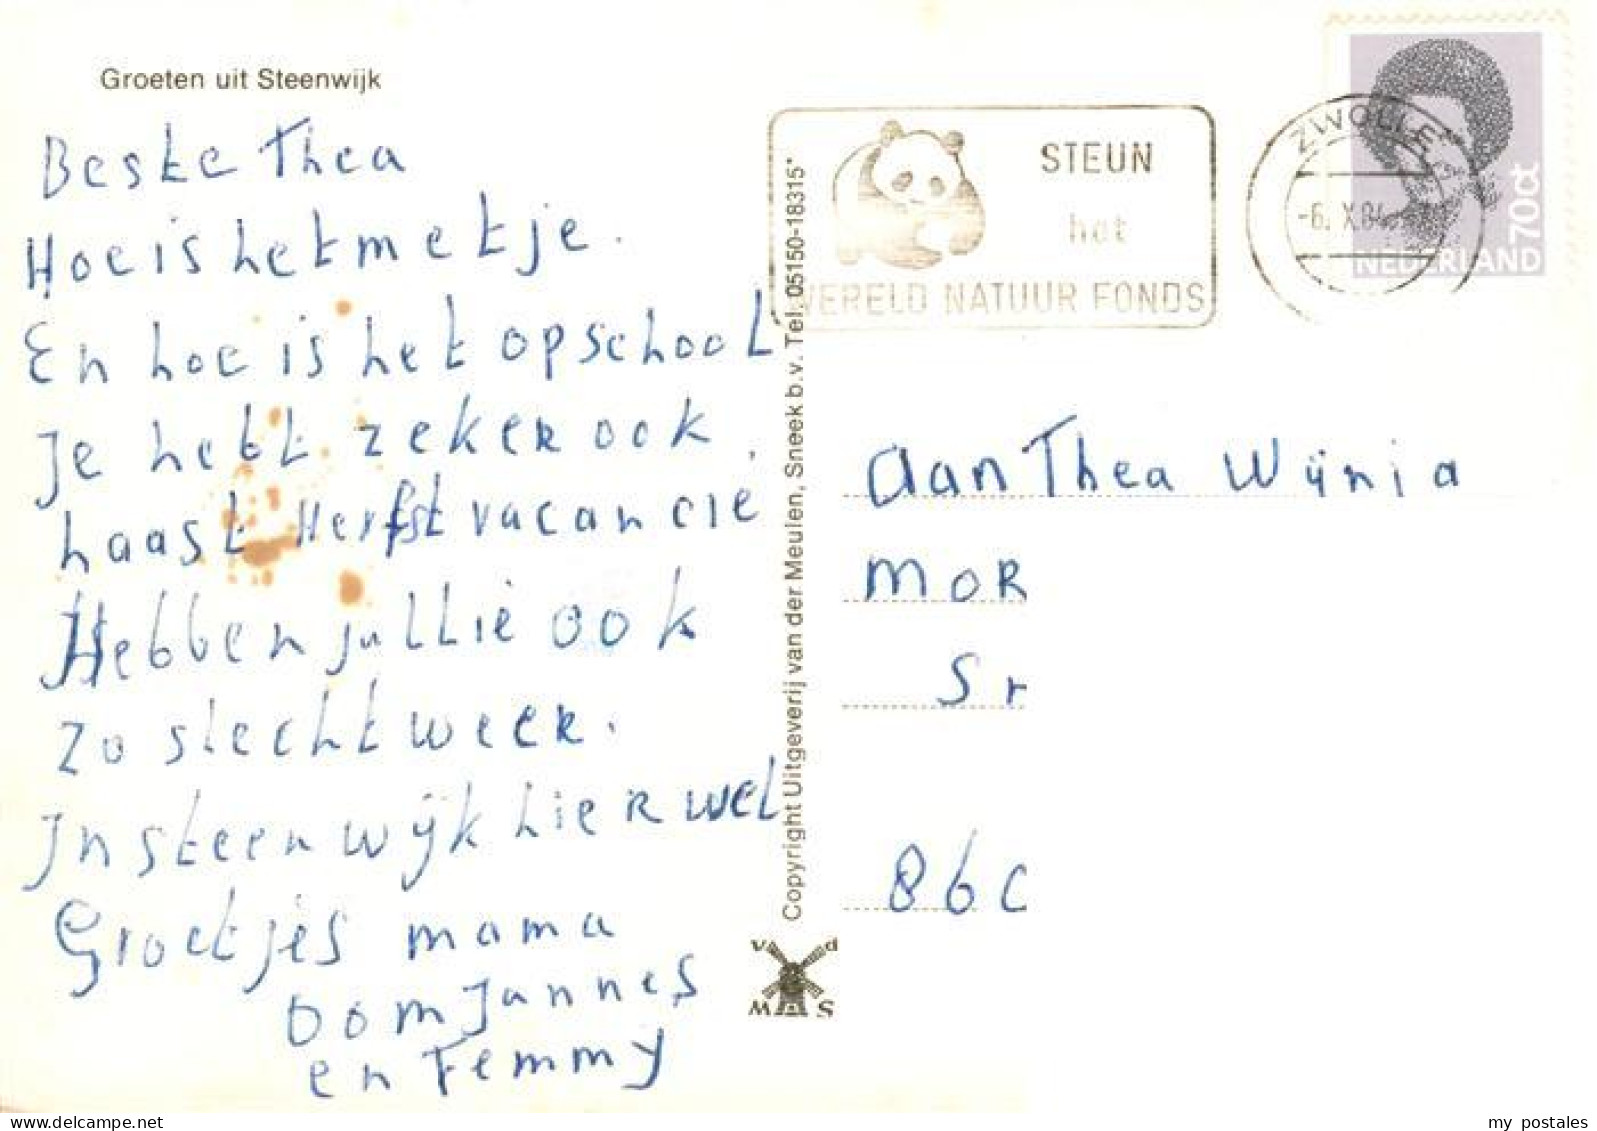 Groeten uit Steenwijk
Beste Thea
Hoe is het met je.
En hoe is het op school
Je hebt zeker ook
haast Herfst vacancie
Hebben jullie ook
zo slecht weer.
In steenwijk hier wel
Groetjes mama
oom Jannes
en Femmy
Copyright Uitgeverij van der Meulen, Sneek b.v. Tel. 05150-18315*
v d
W S
STEUN
het
WERELD NATUUR FONDS
ZWOLLE
-6. X.84
70ct
NEDERLAND
aan Thea Wijnia
MOR
Sr
86C
delcampe.net
my postales